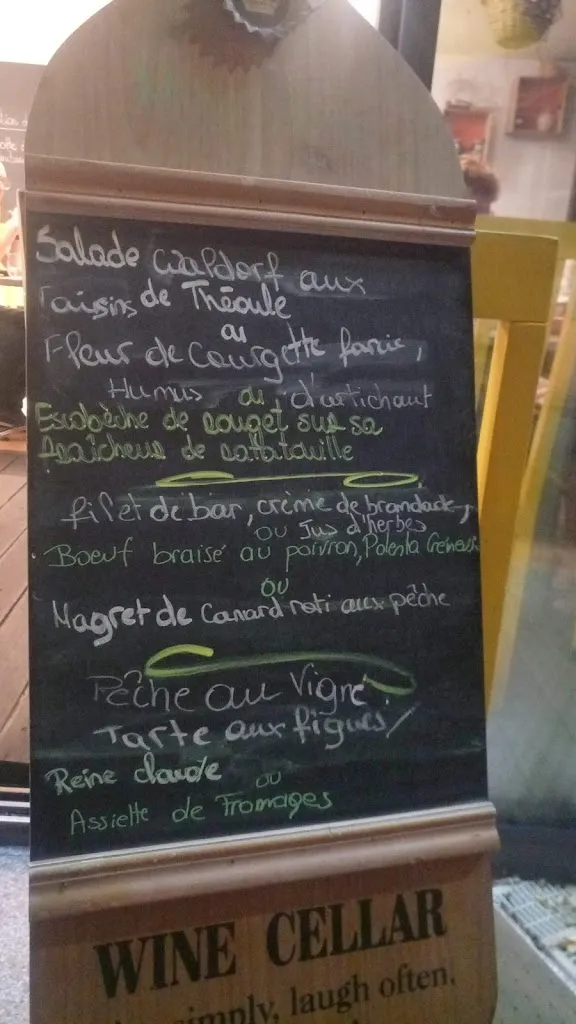 Salade Waldorf aux
raisins de Théoule
ou
Fleur de Courgette farcie,
Humus ou d'artichaut
Escabèche de rouget sur sa
fraîcheur de ratatouille
filet de bar, crème de brandade,
ou Jus d'herbes
Boeuf braisé au poivron, Polenta Crémeuse
ou
Magret de Canard roti aux pêche
Pêche au Vigne
Tarte aux figues /
Reine claude
ou
Assiette de Fromages
WINE CELLAR
simply, laugh often.